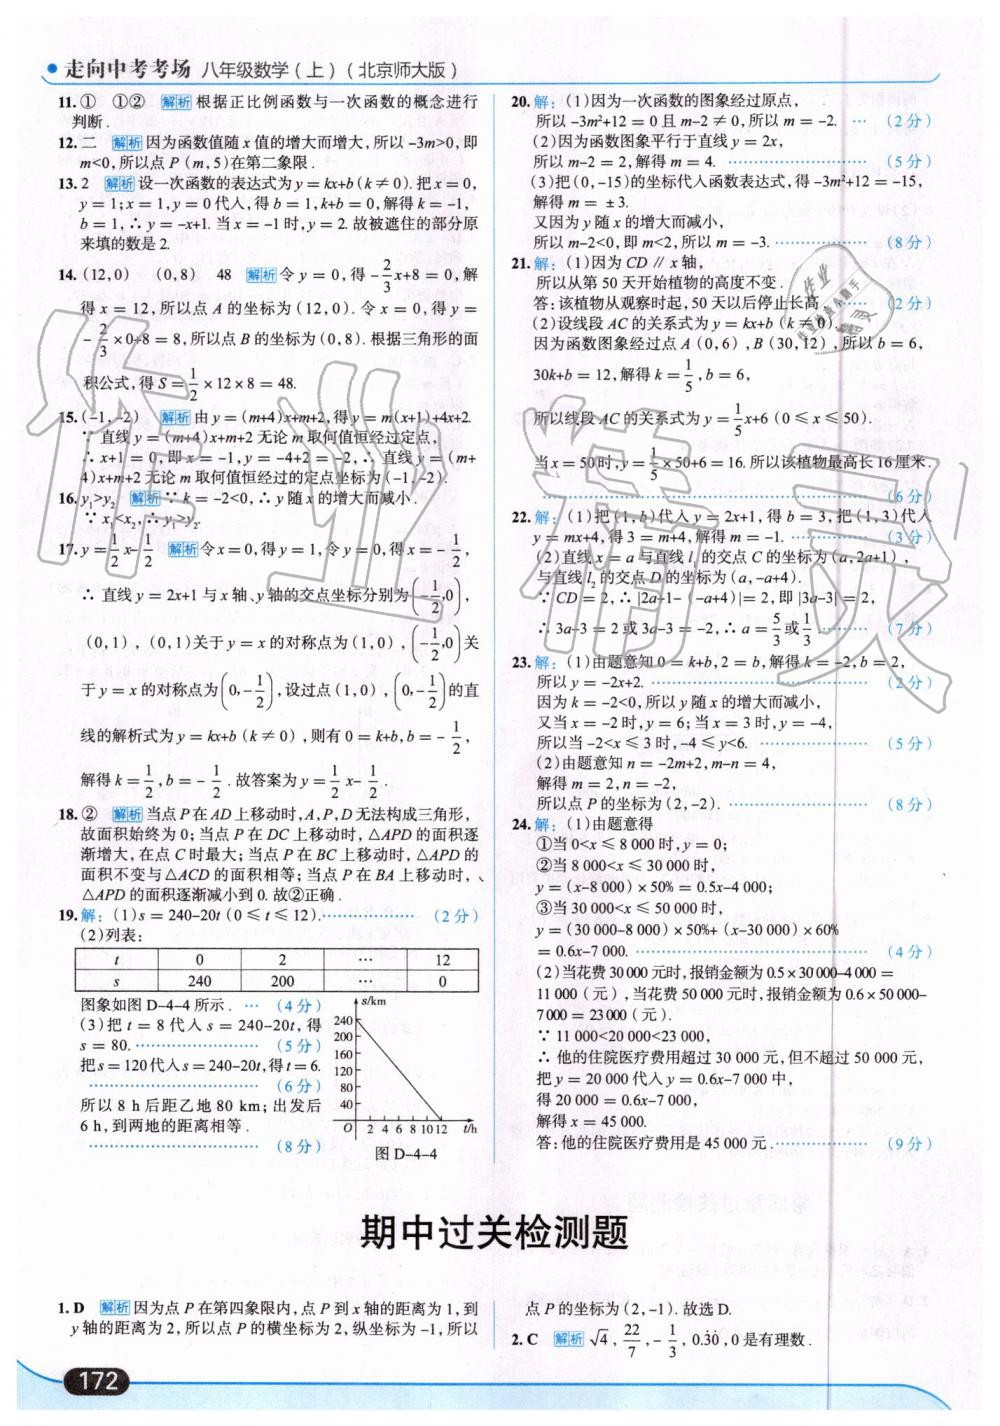 走向中考考场 八年级数学(上)(北京师大版)
11.① ①② 解析 根据正比例函数与一次函数的概念进行
判断.
12.二 解析 因为函数值随x值的增大而增大,所以-3m>0,即
m<0,所以点P(m,5)在第二象限.
13.2 解析 设一次函数的表达式为y=kx+b(k≠0).把x=0,
y=1;x=1,y=0代入,得b=1,k+b=0,解得k=-1,
b=1,∴y=-x+1.当x=-1时,y=2.故被遮住的部分原
来填的数是2.
14.(12,0) (0,8) 48 解析 令y=0,得-2/3x+8=0,解
得x=12,所以点A的坐标为(12,0).令x=0,得y=
-2/3×0+8=8,所以点B的坐标为(0,8).根据三角形的面
积公式,得S=1/2×12×8=48.
15.(-1,-2) 解析 由y=(m+4)x+m+2,得y=m(x+1)+4x+2.
∵直线y=(m+4)x+m+2无论m取何值恒经过定点,
∴x+1=0,即x=-1,y=-4+2=-2,∴直线y=(m+
4)x+m+2无论m取何值恒经过的定点坐标为(-1,-2).
16.y₁>y₂ 解析 ∵k=-2<0,∴y随x的增大而减小.
∵x₁<x₂,∴y₁>y₂.
17.y=1/2x-1/2 解析 令x=0,得y=1,令y=0,得x=-1/2,
∴直线y=2x+1与x轴、y轴的交点坐标分别为(-1/2,0),
(0,1),(0,1)关于y=x的对称点为(1,0),(-1/2,0)关
于y=x的对称点为(0,-1/2),设过点(1,0),(0,-1/2)的直
线的解析式为y=kx+b(k≠0),则有0=k+b,b=-1/2,
解得k=1/2,b=-1/2.故答案为y=1/2x-1/2.
18.② 解析 当点P在AD上移动时,A,P,D无法构成三角形,
故面积始终为0;当点P在DC上移动时,△APD的面积逐
渐增大,在点C时最大;当点P在BC上移动时,△APD的
面积不变与△ACD的面积相等;当点P在BA上移动时,
△APD的面积逐渐减小到0.故②正确.
19.解:(1)s=240-20t(0≤t≤12).………………(2分)
(2)列表:
t 0 2 … 12
s 240 200 … 0
图象如图D-4-4所示.…(4分)
(3)把t=8代入s=240-20t,得
s=80.……………………(5分)
把s=120代入s=240-20t,得t=6.
……………………………(6分)
所以8 h后距乙地80 km;出发后
6 h,到两地的距离相等.
……………………………(8分)
s/km
240
200
160
120
80
40
O 2 4 6 8 10 12 t/h
图D-4-4
20.解:(1)因为一次函数的图象经过原点,
所以-3m²+12=0且m-2≠0,所以m=-2.…(2分)
(2)因为函数图象平行于直线y=2x,
所以m-2=2,解得m=4.………………………(5分)
(3)把(0,-15)的坐标代入函数表达式,得-3m²+12=-15,
解得m=±3.
又因为y随x的增大而减小,
所以m-2<0,即m<2,所以m=-3.………………(8分)
21.解:(1)因为CD∥x轴,
所以从第50天开始植物的高度不变.
答:该植物从观察时起,50天以后停止长高.……(2分)
(2)设线段AC的关系式为y=kx+b(k≠0).
因为函数图象经过点A(0,6),B(30,12),所以b=6,
30k+b=12,解得k=1/5,b=6,
所以线段AC的关系式为y=1/5x+6(0≤x≤50).
当x=50时,y=1/5×50+6=16.所以该植物最高长16厘米.
……………………………………………………(6分)
22.解:(1)把(1,b)代入y=2x+1,得b=3,把(1,3)代入
y=mx+4,得3=m+4,解得m=-1.……………(3分)
(2)直线x=a与直线l₁的交点C的坐标为(a,2a+1),
与直线l₂的交点D的坐标为(a,-a+4).
∵CD=2,∴|2a+1-(-a+4)|=2,即|3a-3|=2,
∴3a-3=2或3a-3=-2,∴a=5/3或1/3.………(7分)
23.解:(1)由题意知0=k+b,2=b,解得k=-2,b=2,
所以y=-2x+2.…………………………………(2分)
因为k=-2<0,所以y随x的增大而减小,
又当x=-2时,y=6;当x=3时,y=-4,
所以当-2<x≤3时,-4≤y<6.…………………(5分)
(2)由题意知n=-2m+2,m-n=4,
解得m=2,n=-2,
所以点P的坐标为(2,-2).………………………(8分)
24.解:(1)由题意得
①当0<x≤8 000时,y=0;
②当8 000<x≤30 000时,
y=(x-8 000)×50%=0.5x-4 000;
③当30 000<x≤50 000时,
y=(30 000-8 000)×50%+(x-30 000)×60%
=0.6x-7 000.……………………………………(4分)
(2)当花费30 000元时,报销金额为0.5×30 000-4 000=
11 000(元),当花费50 000元时,报销金额为0.6×50 000-
7 000=23 000(元).
∵11 000<20 000<23 000,
∴他的住院医疗费用超过30 000元,但不超过50 000元,
把y=20 000代入y=0.6x-7 000中,
得20 000=0.6x-7 000,
解得x=45 000.
答:他的住院医疗费用是45 000元.………………(9分)
期中过关检测题
1.D 解析 因为点P在第四象限内,点P到x轴的距离为1,到
y轴的距离为2,所以点P的横坐标为2,纵坐标为-1,所以
点P的坐标为(2,-1).故选D.
2.C 解析 √4,22/7,-1/3,0.3̇0̇,0是有理数.
172
作业精灵